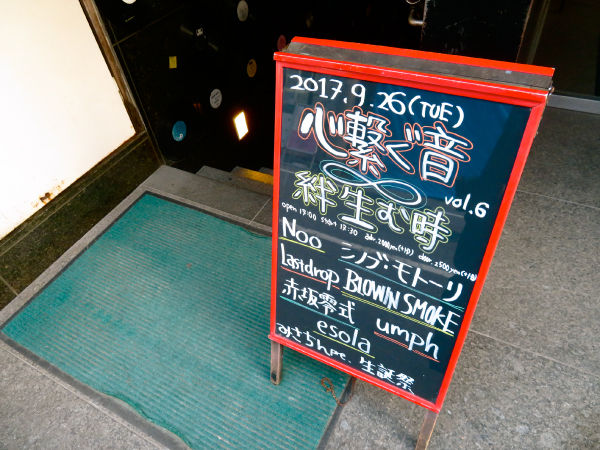 2017.9.26(TUE)
心繋ぐ音
vol.6
絆生む時
open 17:00 start 17:30 adv. 2000yen(+1D) door. 2500yen(+1D)
Noo シノブ・モトーリ
lastdrop BLOWIN SMOKE
赤坂零式 umph
esola
みさちんpe. 生誕祭